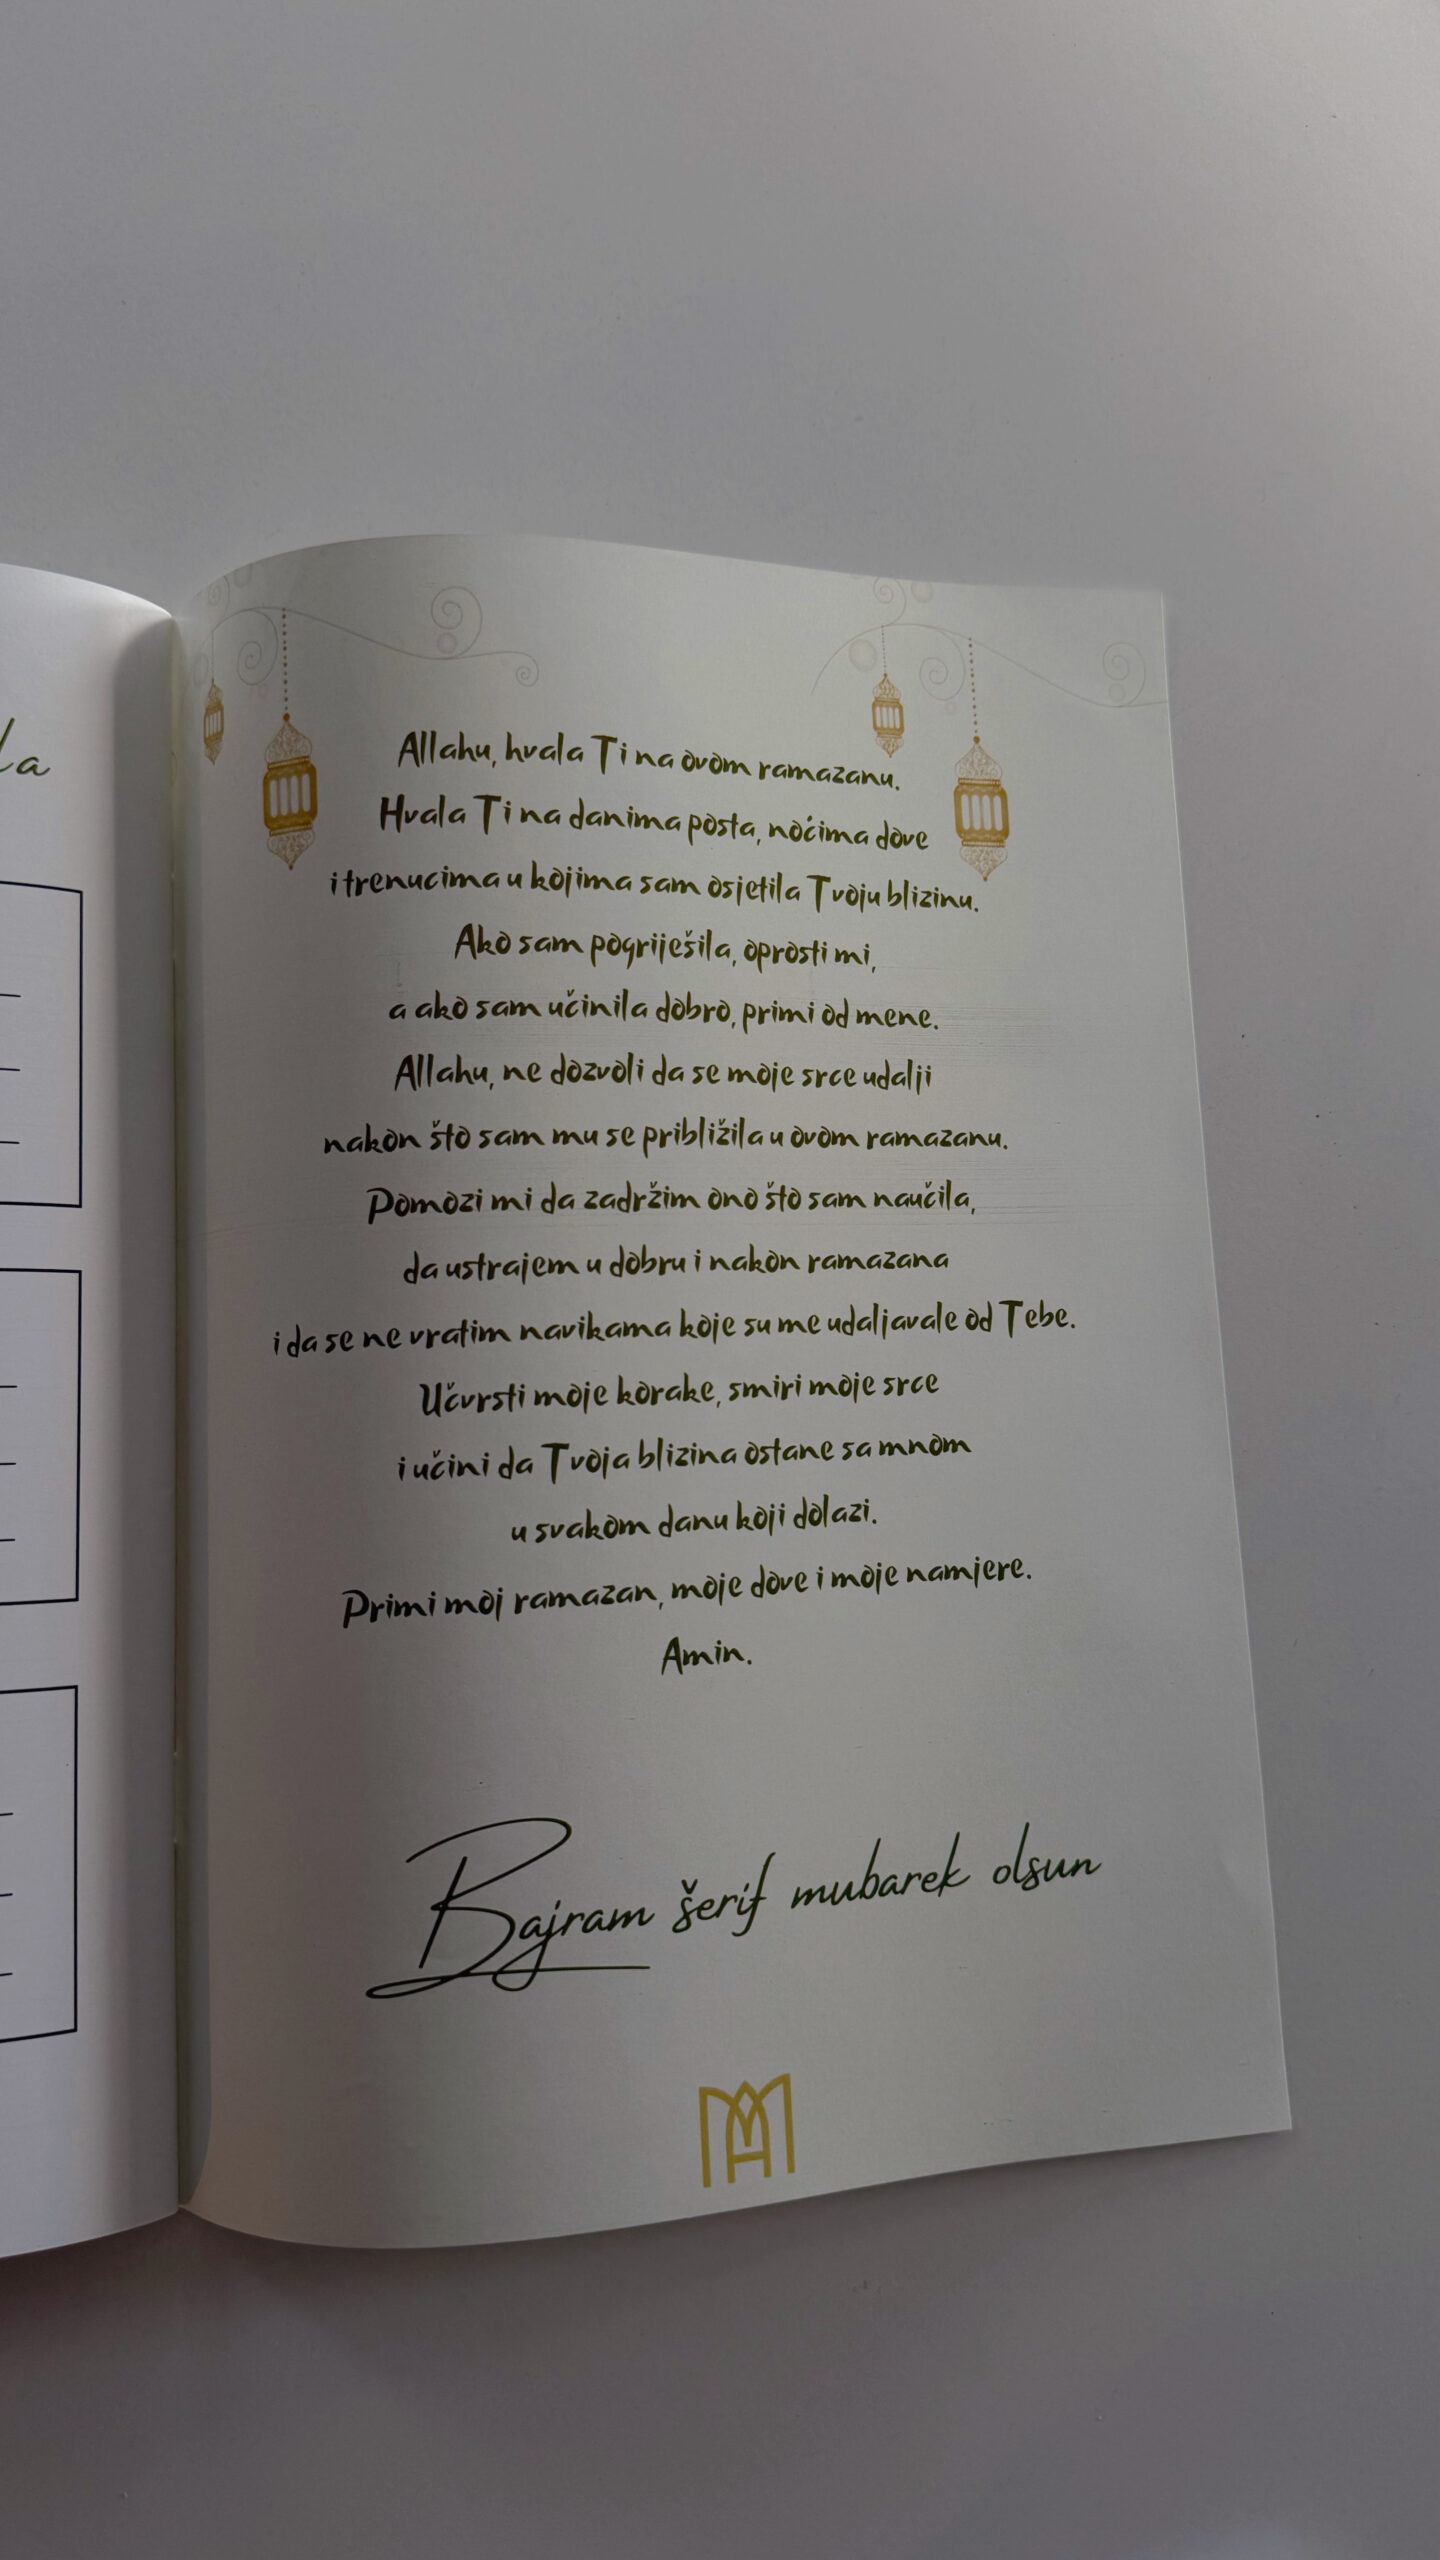 Allahu, hvala Ti na ovom ramazanu.
Hvala Ti na danima posta, noćima dove
i trenucima u kojima sam osjetila Tvoju blizinu.
Ako sam pogriješila, oprosti mi,
a ako sam učinila dobro, primi od mene.
Allahu, ne dozvoli da se moje srce udalji
nakon što sam mu se približila u ovom ramazanu.
Pomozi mi da zadržim ono što sam naučila,
da ustrajem u dobru i nakon ramazana
i da se ne vratim navikama koje su me udaljavale od Tebe.
Učvrsti moje korake, smiri moje srce
i učini da Tvoja blizina ostane sa mnom
u svakom danu koji dolazi.
Primi moj ramazan, moje dove i moje namjere.
Amin.
Bajram šerif mubarek olsun